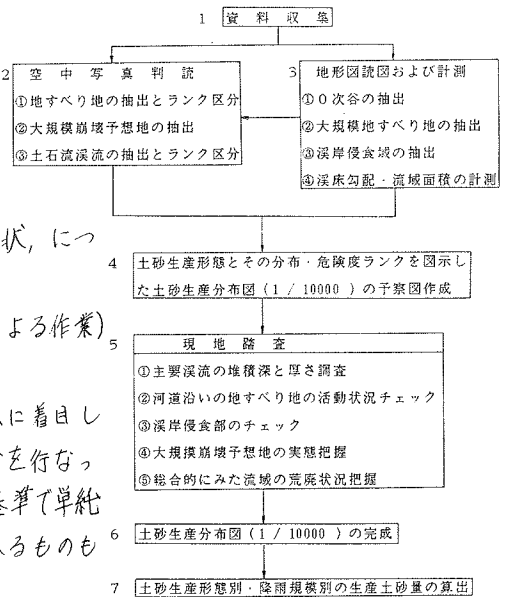 1 資料収集
2 空中写真判読
①地すべり地の抽出とランク区分
②大規模崩壊予想地の抽出
③土石流渓流の抽出とランク区分
3 地形図読図および計測
①0次谷の抽出
②大規模地すべり地の抽出
③渓岸侵食域の抽出
④渓床勾配・流域面積の計測
状,につ
よる作業)
に着目し
を行なっ
基準で単純
るものも
4 土砂生産形態とその分布・危険度ランクを図示し
た土砂生産分布図(1/10000)の予察図作成
5 現地踏査
①主要渓流の堆積深と厚さ調査
②河道沿いの地すべり地の活動状況チェック
③渓岸侵食部のチェック
④大規摸崩壊予想地の実態把握
⑤総合的にみた流域の荒廃状況把握
6 土砂生産分布図(1/10000)の完成
7 土砂生産形態別・降雨規模別の生産土砂量の算出